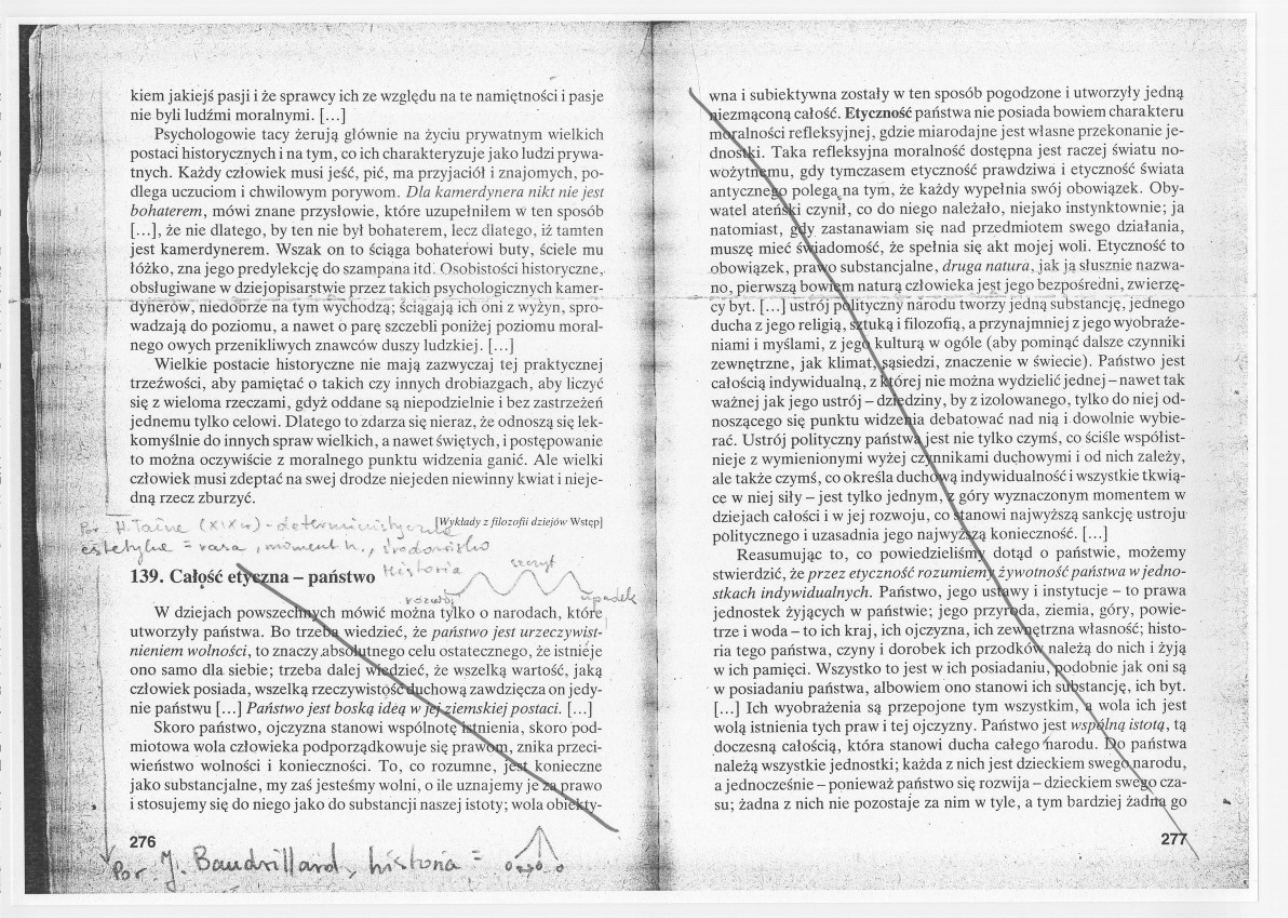 kiem jakiejś pasji i że sprawcy ich ze względu na te namiętności i pasje
nie byli ludźmi moralnymi. [...]
Psychologowie tacy żerują głównie na życiu prywatnym wielkich
postaci historycznych i na tym, co ich charakteryzuje jako ludzi prywa-
tnych. Każdy człowiek musi jeść, pić, ma przyjaciół i znajomych, po-
dlega uczuciom i chwilowym porywom. Dla kamerdynera nikt nie jest
bohaterem, mówi znane przysłowie, które uzupełniłem w ten sposób
[...], że nie dlatego, by ten nie był bohaterem, lecz dlatego, iż tamten
jest kamerdynerem. Wszak on to ściąga bohaterowi buty, ściele mu
łóżko, zna jego predylekcję do szampana itd. Osobistości historyczne,
obsługiwane w dziejopisarstwie przez takich psychologicznych kamer-
dynerów, niedobrze na tym wychodzą; ściągają ich oni z wyżyn, spro-
wadzają do poziomu, a nawet o parę szczebli poniżej poziomu moral-
nego owych przenikliwych znawców duszy ludzkiej. [...]
Wielkie postacie historyczne nie mają zazwyczaj tej praktycznej
trzeźwości, aby pamiętać o takich czy innych drobiazgach, aby liczyć
się z wieloma rzeczami, gdyż oddane są niepodzielnie i bez zastrzeżeń
jednemu tylko celowi. Dlatego to zdarza się nieraz, że odnoszą się lek-
komyślnie do innych spraw wielkich, a nawet świętych, i postępowanie
to można oczywiście z moralnego punktu widzenia ganić. Ale wielki
człowiek musi zdeptać na swej drodze niejeden niewinny kwiat i nieje-
dną rzecz zburzyć.
[Wykłady z filozofii dziejów Wstęp]
Por. H. Taine (XIX w) - deterministyczne
estetyka = rasa, moment h., środowisko
Historia
szczyt
139. Całość etyczna – państwo
rozwój
upadek
W dziejach powszechnych mówić można tylko o narodach, które
utworzyły państwa. Bo trzeba wiedzieć, że państwo jest urzeczywist-
nieniem wolności, to znaczy absolutnego celu ostatecznego, że istnieje
ono samo dla siebie; trzeba dalej wiedzieć, że wszelką wartość, jaką
człowiek posiada, wszelką rzeczywistość duchową zawdzięcza on jedy-
nie państwu [...] Państwo jest boską ideą w jej ziemskiej postaci. [...]
Skoro państwo, ojczyzna stanowi wspólnotę istnienia, skoro pod-
miotowa wola człowieka podporządkowuje się prawom, znika przeci-
wieństwo wolności i konieczności. To, co rozumne, jest konieczne
jako substancjalne, my zaś jesteśmy wolni, o ile uznajemy je za prawo
i stosujemy się do niego jako do substancji naszej istoty; wola obiekty-
276
Por. J. Baudrillard, historia =
wna i subiektywna zostały w ten sposób pogodzone i utworzyły jedną
niezmąconą całość. Etyczność państwa nie posiada bowiem charakteru
moralności refleksyjnej, gdzie miarodajne jest własne przekonanie je-
dnostki. Taka refleksyjna moralność dostępna jest raczej światu no-
wożytnemu, gdy tymczasem etyczność prawdziwa i etyczność świata
antycznego polega na tym, że każdy wypełnia swój obowiązek. Oby-
watel ateński czynił, co do niego należało, niejako instynktownie; ja
natomiast, gdy zastanawiam się nad przedmiotem swego działania,
muszę mieć świadomość, że spełnia się akt mojej woli. Etyczność to
obowiązek, prawo substancjalne, druga natura, jak ją słusznie nazwa-
no, pierwszą bowiem naturą człowieka jest jego bezpośredni, zwierzę-
cy byt. [...] ustrój polityczny narodu tworzy jedną substancję, jednego
ducha z jego religią, sztuką i filozofią, a przynajmniej z jego wyobraże-
niami i myślami, z jego kulturą w ogóle (aby pominąć dalsze czynniki
zewnętrzne, jak klimat, sąsiedzi, znaczenie w świecie). Państwo jest
całością indywidualną, z której nie można wydzielić jednej – nawet tak
ważnej jak jego ustrój – dziedziny, by z izolowanego, tylko do niej od-
noszącego się punktu widzenia debatować nad nią i dowolnie wybie-
rać. Ustrój polityczny państwa jest nie tylko czymś, co ściśle współist-
nieje z wymienionymi wyżej czynnikami duchowymi i od nich zależy,
ale także czymś, co określa duchową indywidualność i wszystkie tkwią-
ce w niej siły – jest tylko jednym, z góry wyznaczonym momentem w
dziejach całości i w jej rozwoju, co stanowi najwyższą sankcję ustroju
politycznego i uzasadnia jego najwyższą konieczność. [...]
Reasumując to, co powiedzieliśmy dotąd o państwie, możemy
stwierdzić, że przez etyczność rozumiemy żywotność państwa w jedno-
stkach indywidualnych. Państwo, jego ustawy i instytucje – to prawa
jednostek żyjących w państwie; jego przyroda, ziemia, góry, powie-
trze i woda – to ich kraj, ich ojczyzna, ich zewnętrzna własność; histo-
ria tego państwa, czyny i dorobek ich przodków należą do nich i żyją
w ich pamięci. Wszystko to jest w ich posiadaniu, podobnie jak oni są
w posiadaniu państwa, albowiem ono stanowi ich substancję, ich byt.
[...] Ich wyobrażenia są przepojone tym wszystkim, a wola ich jest
wolą istnienia tych praw i tej ojczyzny. Państwo jest wspólną istotą, tą
doczesną całością, która stanowi ducha całego narodu. Do państwa
należą wszystkie jednostki; każda z nich jest dzieckiem swego narodu,
a jednocześnie – ponieważ państwo się rozwija – dzieckiem swego cza-
su; żadna z nich nie pozostaje za nim w tyle, a tym bardziej żadna go
277